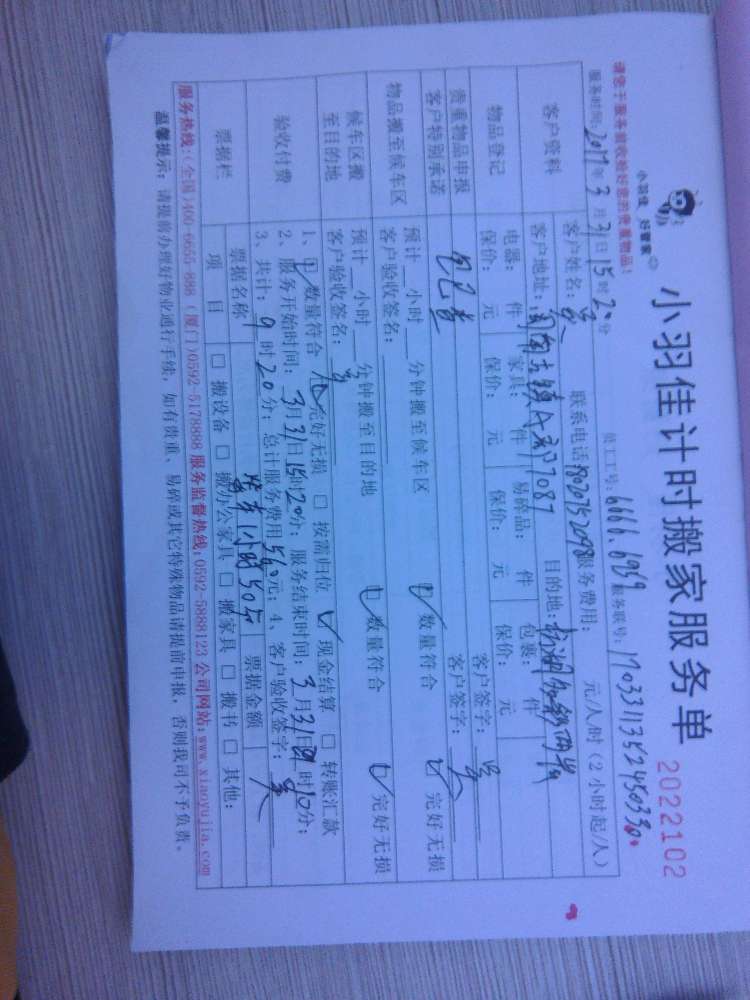 小羽佳 好管家
小羽佳计时搬家服务单 2022102
请您于服务前收捡好您的贵重物品!
员工工号:6666.6959 服务联号:
服务时间:2017年3月31日15时20分
客户资料
客户姓名: 联系电话 服务费用: 元/人/时(2小时起/人)
客户地址: 目的地:
物品登记
电器: 件 家具: 件 易碎品: 件 包裹: 件
保价: 元 保价: 元 保价: 元 保价: 元
贵重物品申报 客户签字:
客户特别承诺 包已查 客户签字:
物品搬至候车区
预计__小时__分钟搬至候车区 数量符合 完好无损
客户验收签名:
候车区搬至目的地
预计__小时__分钟搬至目的地 数量符合 完好无损
客户验收签名:
验收付费
1、数量符合 完好无损 □ 按需归位 现金结算 □ 转账汇款
2、服务开始时间:3月31日15时20分;服务结束时间:3月31日 时10分;
3、共计:9时20分;总计服务费用560元;4、客户验收签字:
票据栏
票据名称 小时50 票据金额
项目 □ 搬设备 □ 搬办公家具 □ 搬家具 □ 搬书 □ 其他:
服务热线:(全国)400-6655-888 (厦门)0592-5178888 服务监督热线:0592-5888123 公司网站:www.xiaoyujia.com
温馨提示:请提前办理好物业通行手续,如有贵重、易碎或其它特殊物品请提前申报,否则我司不予负责。